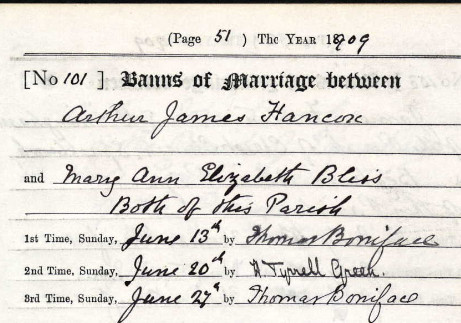 (Page 51 ) The YEAR 1909
[No 101 ] Banns of Marriage between
Arthur James Hancox
and Mary Ann Elizabeth Bliss
Both of this Parish
1st Time, Sunday, June 13th by Thomas Boniface
2nd Time, Sunday, June 20th by H Tyrrell Green.
3rd Time, Sunday, June 27th by Thomas Boniface